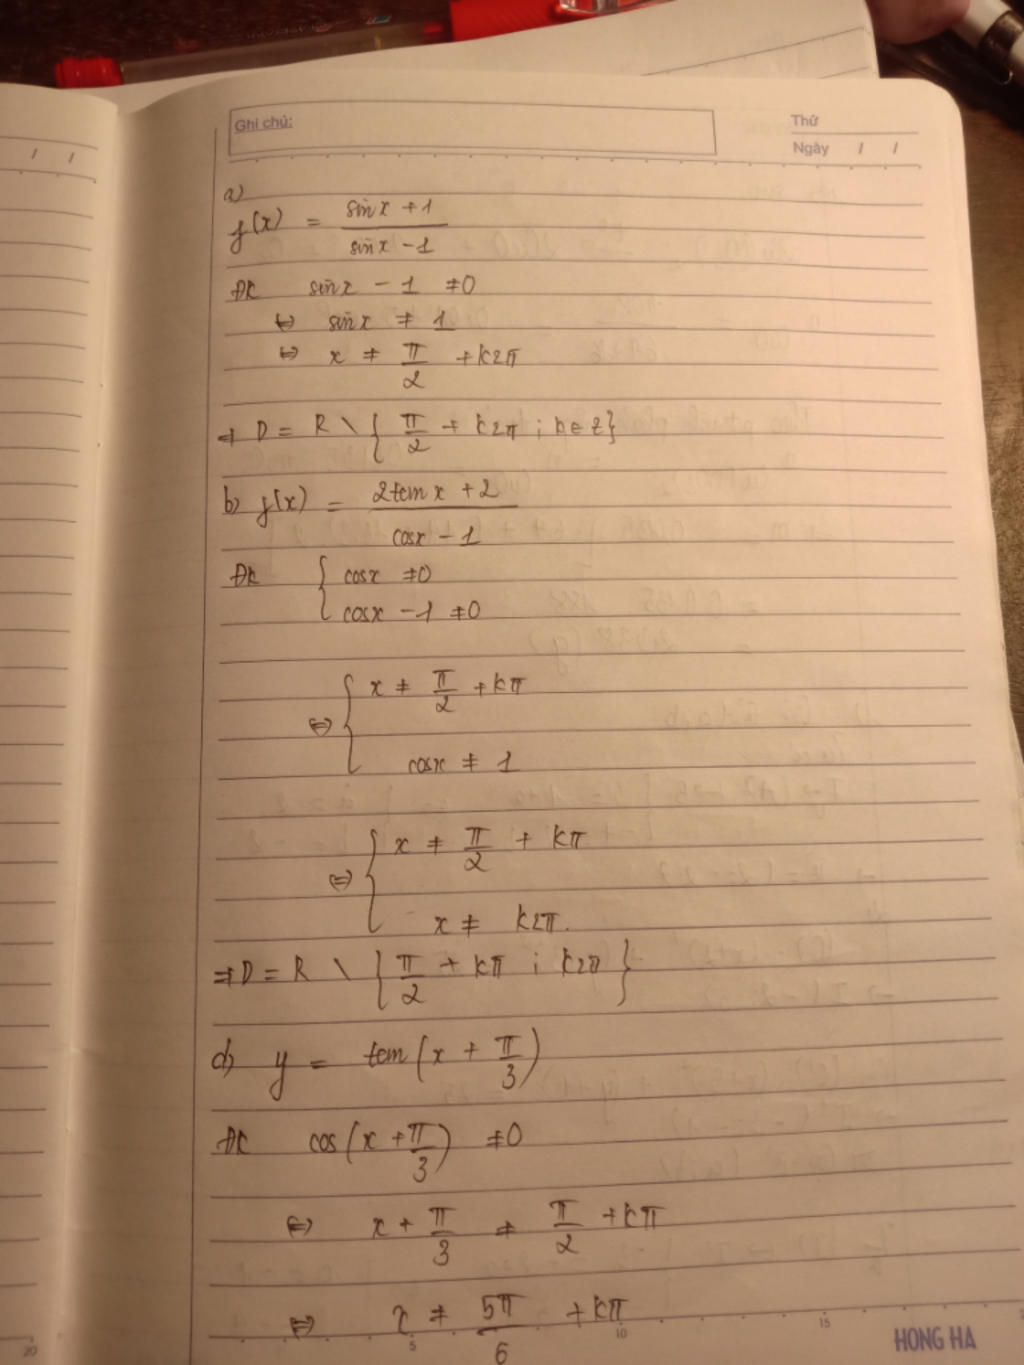 Ghi chú:
Thứ
Ngày / /
/ /
a)
f(x) = \frac{sinx + 1}{sinx - 1}
ĐK sinx - 1 ≠ 0
⇔ sinx ≠ 1
⇔ x ≠ \frac{π}{2} + k2π
⇒ D = R \ { \frac{π}{2} + k2π ; k ∈ Z }
b) f(x) = \frac{2tanx + 2}{cosx - 1}
ĐK { cosx ≠ 0
cosx - 1 ≠ 0
⇔ { x ≠ \frac{π}{2} + kπ
cosx ≠ 1
⇔ { x ≠ \frac{π}{2} + kπ
x ≠ k2π.
⇒ D = R \ { \frac{π}{2} + kπ ; k2π }
d) y = tan(x + \frac{π}{3})
ĐK cos(x + \frac{π}{3}) ≠ 0
⇔ x + \frac{π}{3} ≠ \frac{π}{2} + kπ
⇔ x ≠ \frac{5π}{6} + kπ
20 5 10 15
HONG HA